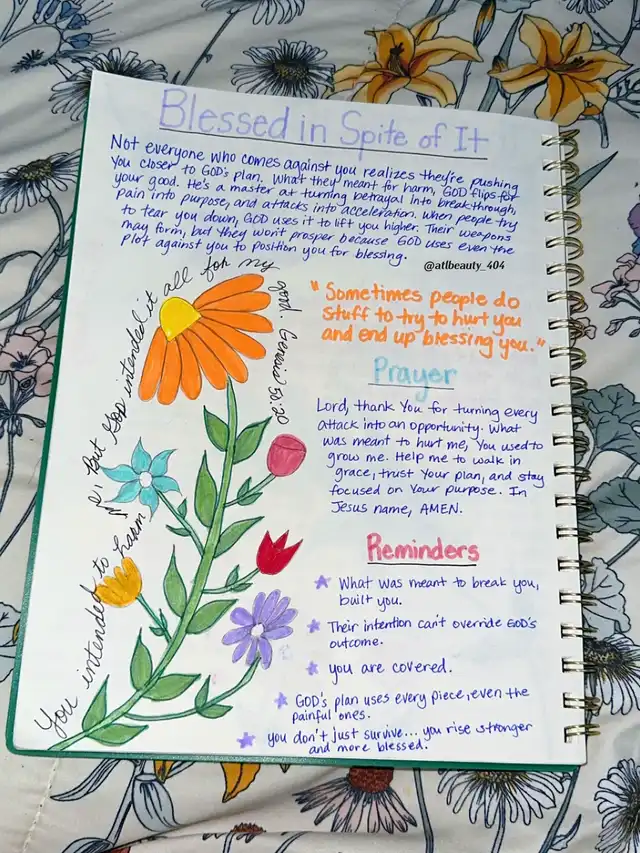 Blessed in Spite of It
Not everyone who comes against you realizes they're pushing
you closer to GOD's plan. What they meant for harm, GOD flips for
your good. He's a master at turning betrayal into breakthrough,
pain into purpose, and attacks into acceleration. When people try
to tear you down, GOD uses it to lift you higher. Their weapons
may form, but they won't prosper because GOD uses even the
plot against you to position you for blessing.
@atlbeauty_404
You intended to harm me, But God intended it all for my good. Genesis 50:20
"Sometimes people do
stuff to try to hurt you
and end up blessing you."
Prayer
Lord, thank You for turning every
attack into an opportunity. What
was meant to hurt me, You used to
grow me. Help me to walk in
grace, trust Your plan, and stay
focused on Your purpose. In
Jesus name, AMEN.
Reminders
What was meant to break you,
built you.
Their intention can't override GOD's
outcome.
you are covered.
GOD's plan uses every piece, even the
painful ones.
you don't just survive... you rise stronger
and more blessed.